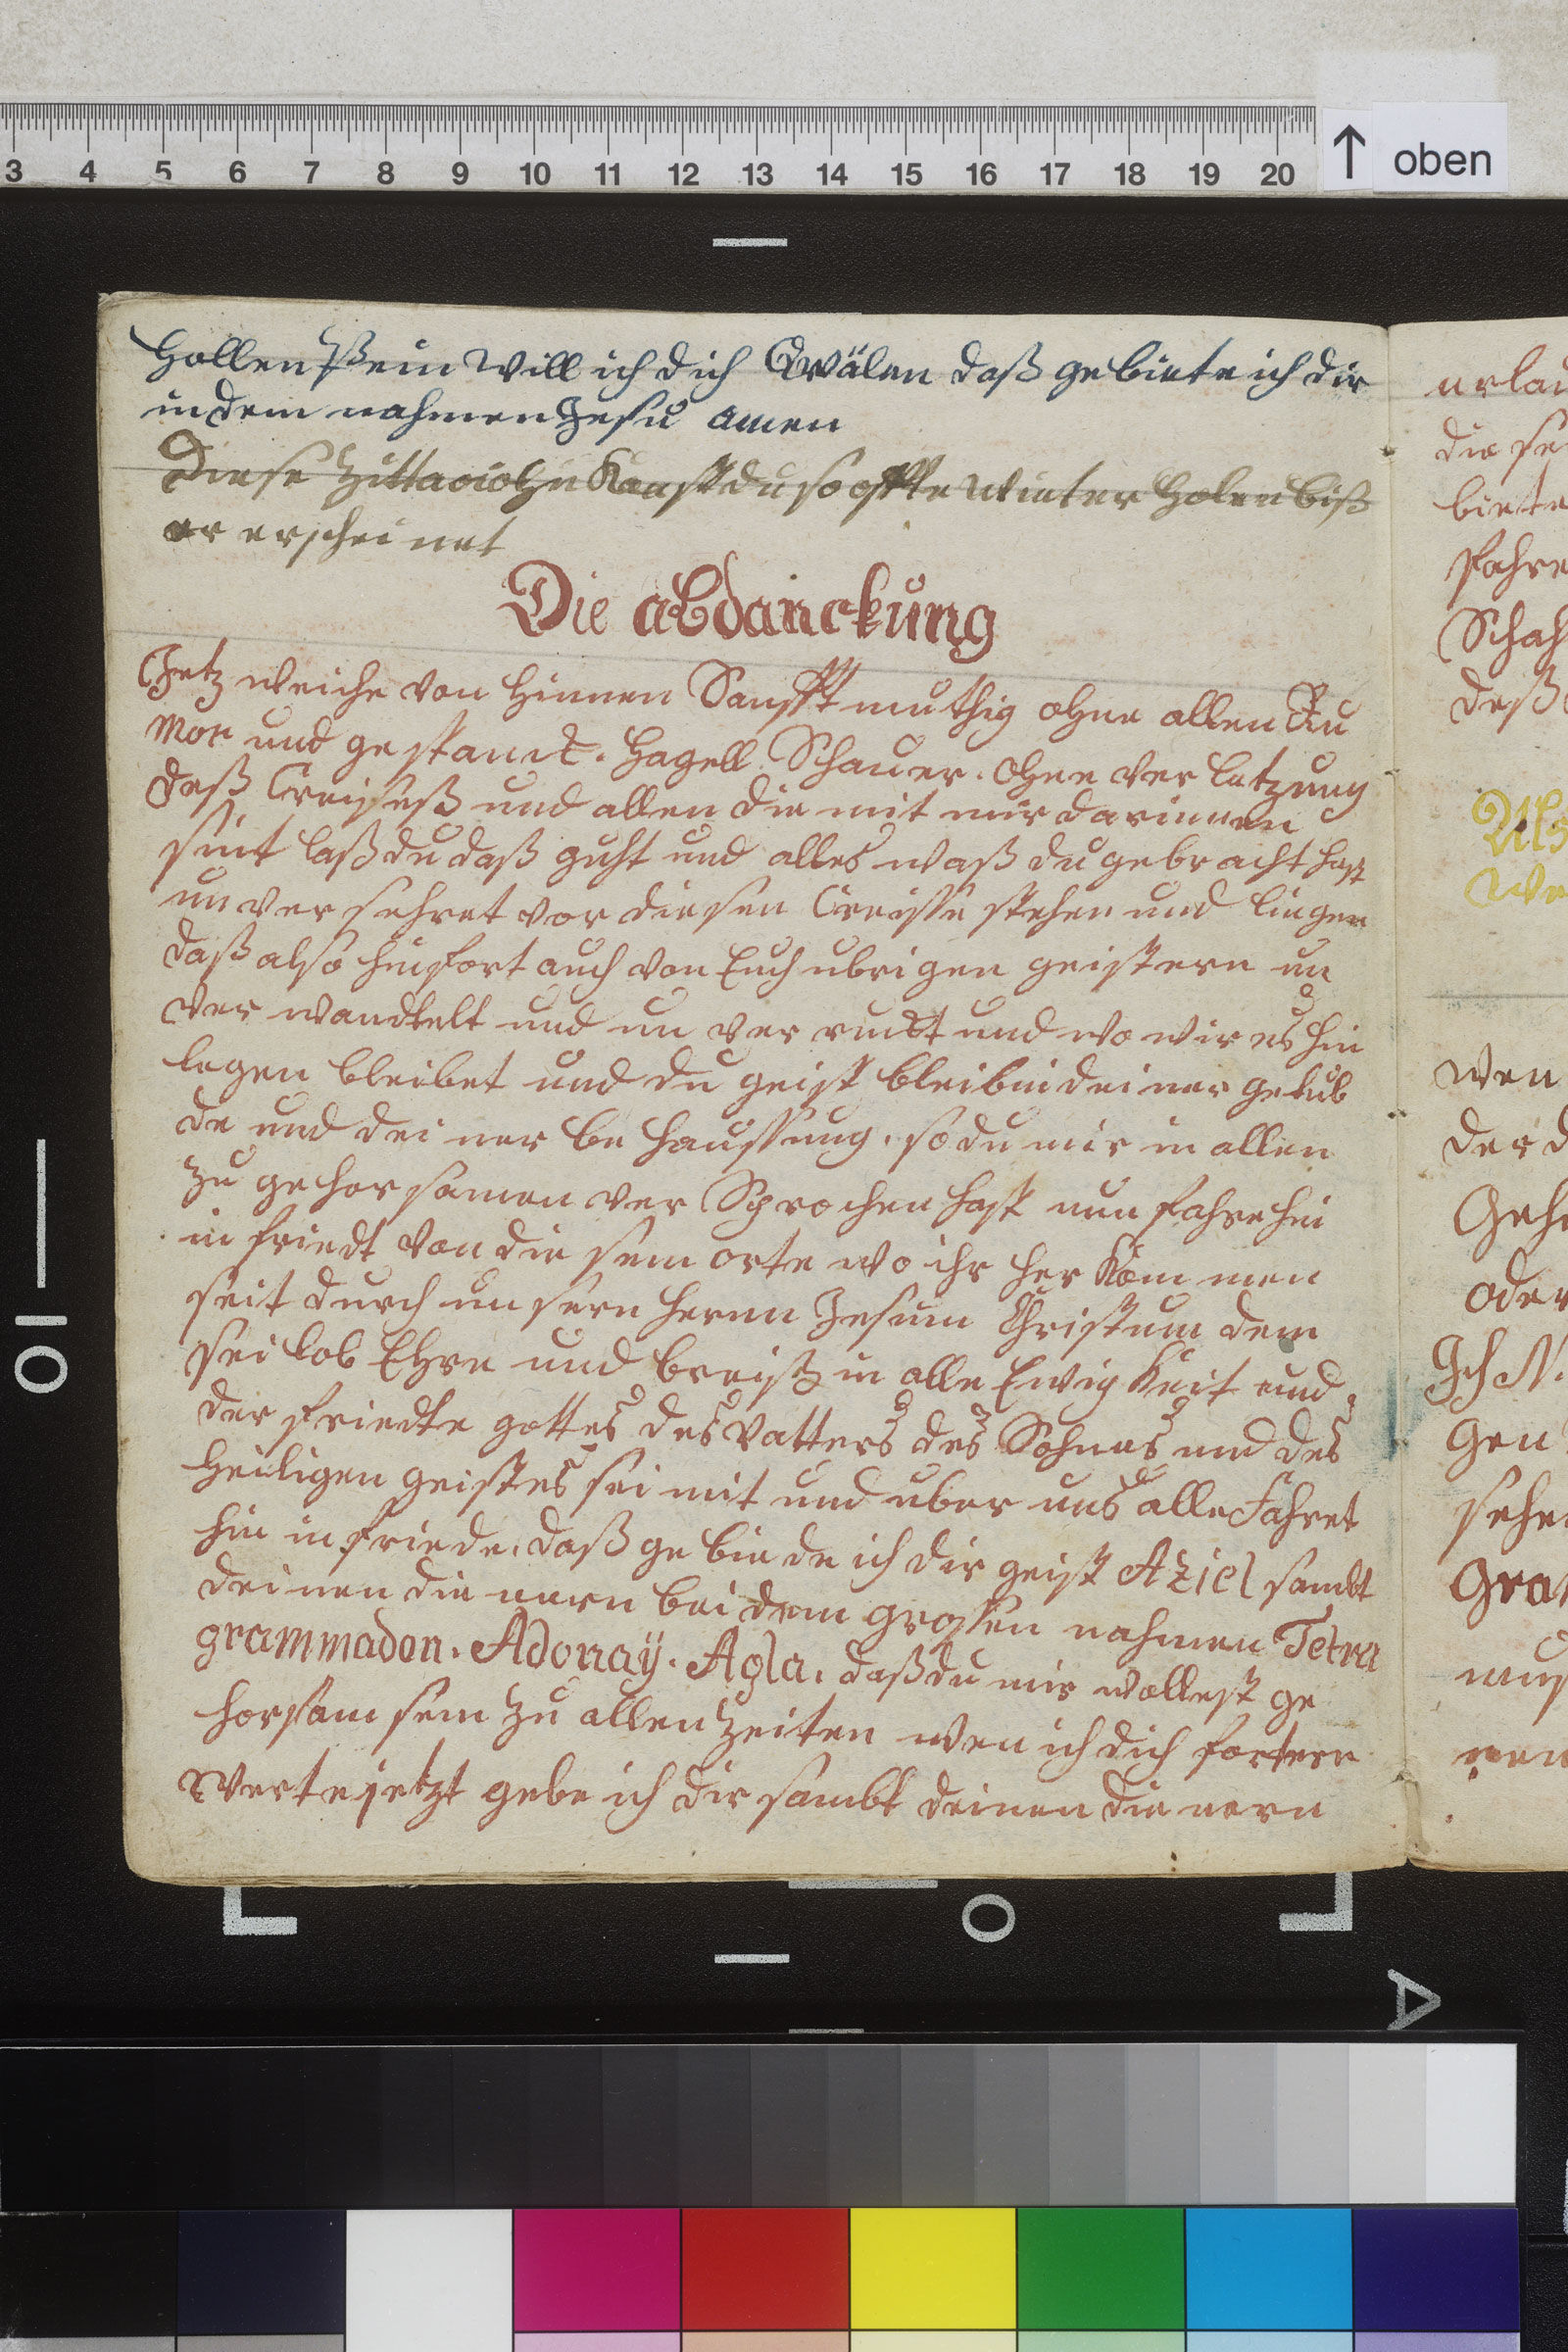 3 4 5 6 7 8 9 10 11 12 13 14 15 16 17 18 19 20 ↑ oben
Hollen Pein will ich dich Qwälen daß gebiete ich dir
in dem nahmen Jesu amen
Diese Zittacion Kanst du so offte Winter Holen biß
er erscheinet
Die abdanckung
Jetz weiche von hinnen Sanfft muthig ohne allen Ru
Mor und gestanck. Hagell Schauer. ohne ver letzung
deß Creisseß und allen die mit mir darinnen
sint laß du daß guht und alles waß du gebracht hast
un ver sehret vor diesen Creisse stehen und liegen
daß also hinfort auch von Euch ubrigen geistern un
ver wandtelt und un ver ruckt und wo wir es hin
legen bleibet und du geist bleib in deiner gelub
de und dei ner be haussung. so du mir in allen
zu gehorsamen ver Sprochen hast nun fahre hin
in friedt von die sem orte wo ihr her Kom men
seit durch un sern herrn Jesum Christum dem
sei lob Ehre und breiß in alle Ewig Keit und
der friedte gottes des Vatters des Sohnes und des
Heiligen geistes sei mit und uber uns alle Fahret
hin in friede. daß ge bie de ich dir geist Aziel sambt
deinen die nern bei dem grossen nahmen Tetra
grammadon. Adonaÿ. Agla. daß du mir wollest ge
horsam sein zu allen Zeiten wen ich dich fortern
werte jetzt gebe ich dir sambt deinen die nern
erlau
die se
biete
fahre
Schah
deß
Als
We
wen
der d
Geh
oder
Ich N.
gen
sehe
Gra
mus
nen